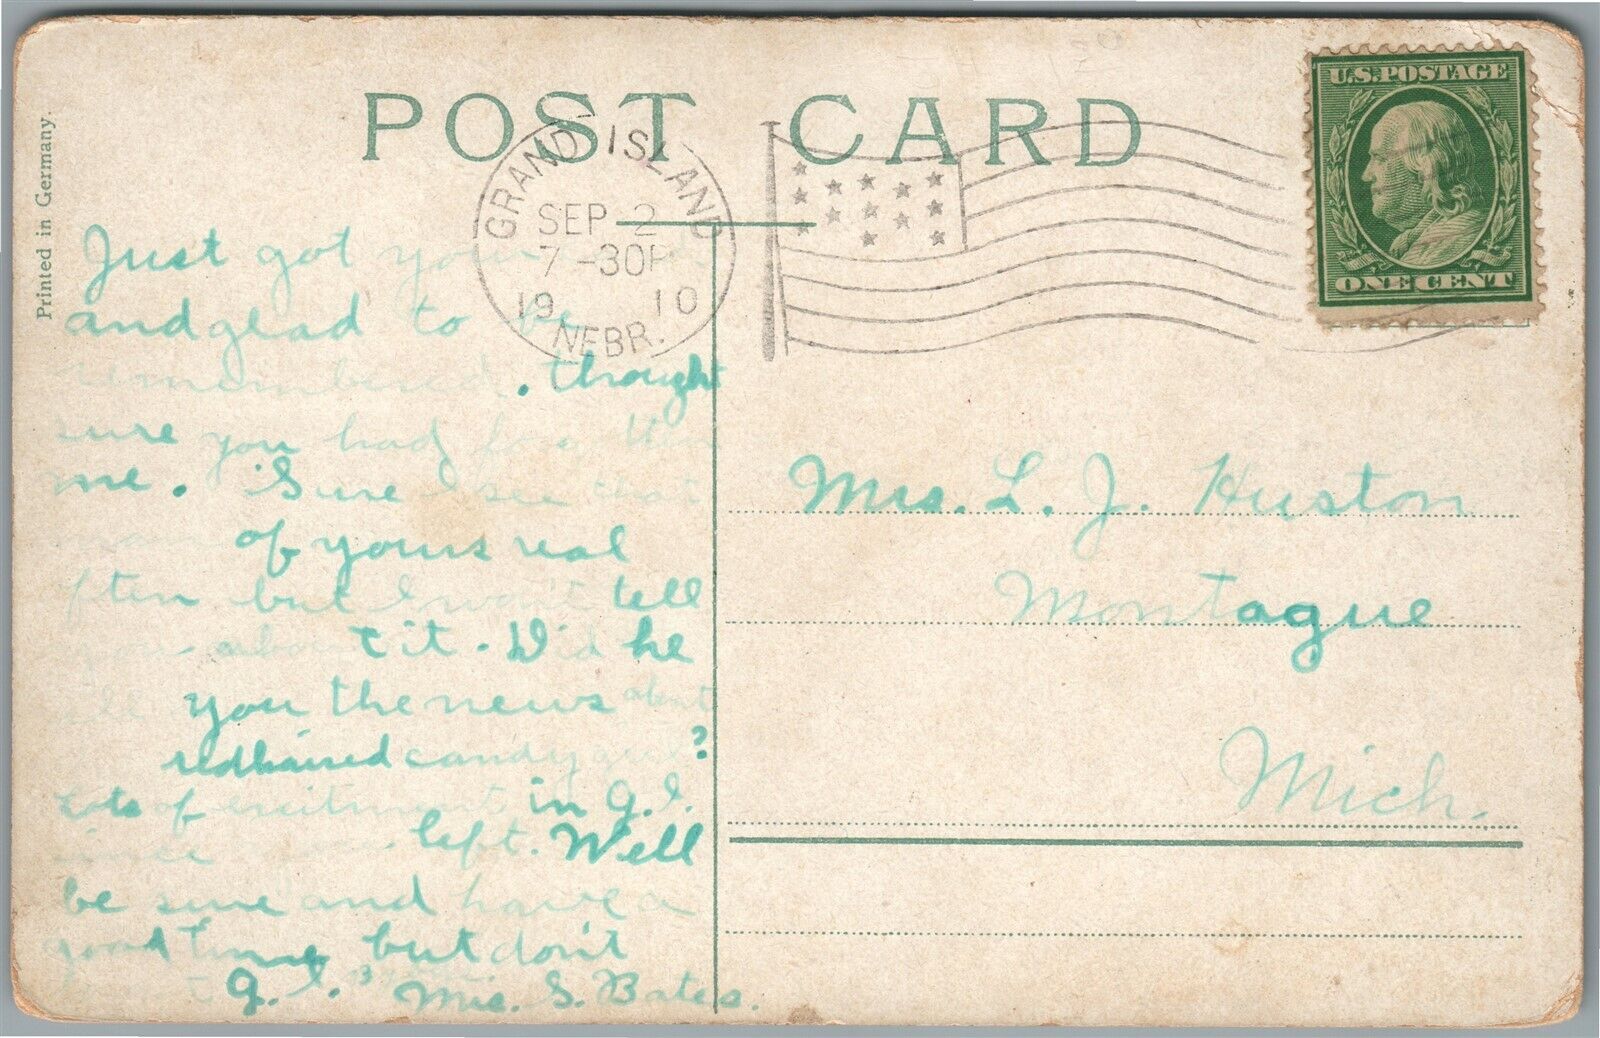 POST CARD
Printed in Germany.
U.S. POSTAGE
ONE CENT
GRAND ISLAND
SEP 2
7-30P
1910
NEBR.
Just got your
and glad to be
remembered. thought
sure you had forgotten
me. Sure I see that
man of yours real
ften but I won't tell
you about it. Did he
you the news about
redhaired candy girl?
Lots of exsitment in G. I.
since left. Well
be sure and have a
good time but don't
G. I. Bye Mrs. S. Bates.
Mrs. L. J. Huston
Montague
Mich.